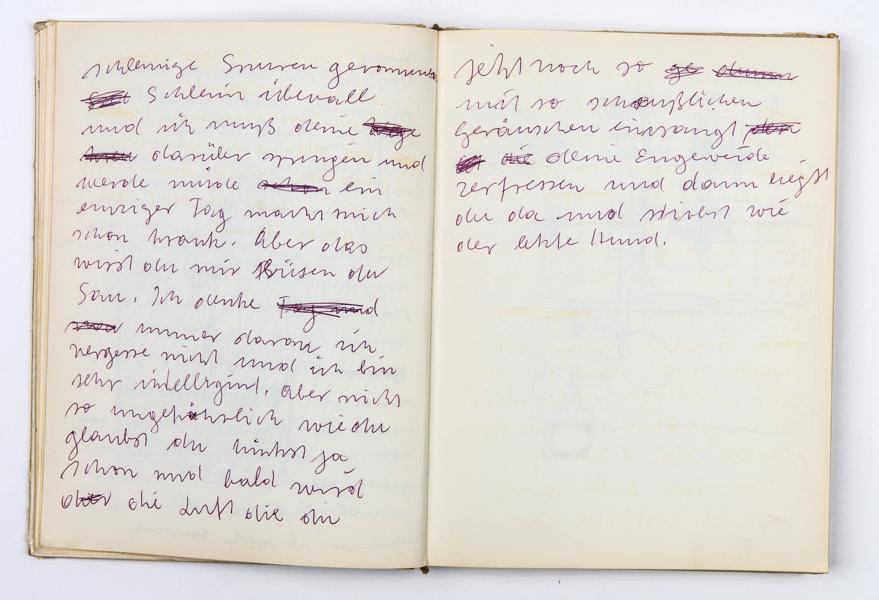 schleimige Spuren geronnenen
Schleim überall
und ich muß deine
darüber springen und
werde müde ein
einziger Tag macht mich
schon krank. Aber das
wirst du mir Büsen du
Sau. Ich denke
immer daran ich
vergesse nicht und ich bin
sehr intelligint. Aber nicht
so ungefährlich wie du
glaubst du hinkst ja
schon und bald wird
die Luft die du
jetzt noch so
mit so scheußlichen
Geräuschen einsaugst
deine Engeweide
zerfressen und dann liegst
du da und stirbst wie
der letzte Hund.